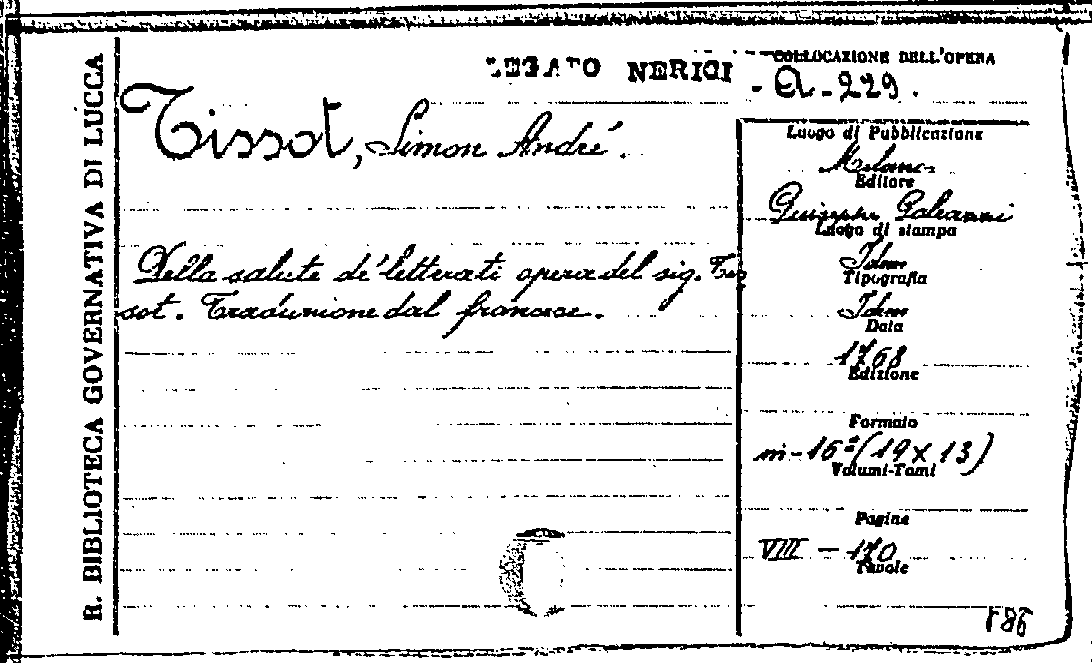 R. BIBLIOTECA GOVERNATIVA DI LUCCA
LEGATO NERICI
COLLOCAZIONE DELL'OPERA
-A-229.
Tissot, Simon André.
Della salute de' letterati opera del sig. Tis
sot. Traduzione dal francese.
Luogo di Pubblicazione
Milano
Editore
Giuseppe Galeazzi
Luogo di stampa
Idem
Tipografia
Idem
Data
1768
Edizione
Formato
in-16°(19x13)
Volumi-Tomi
Pagine
VIII - 170
Tavole